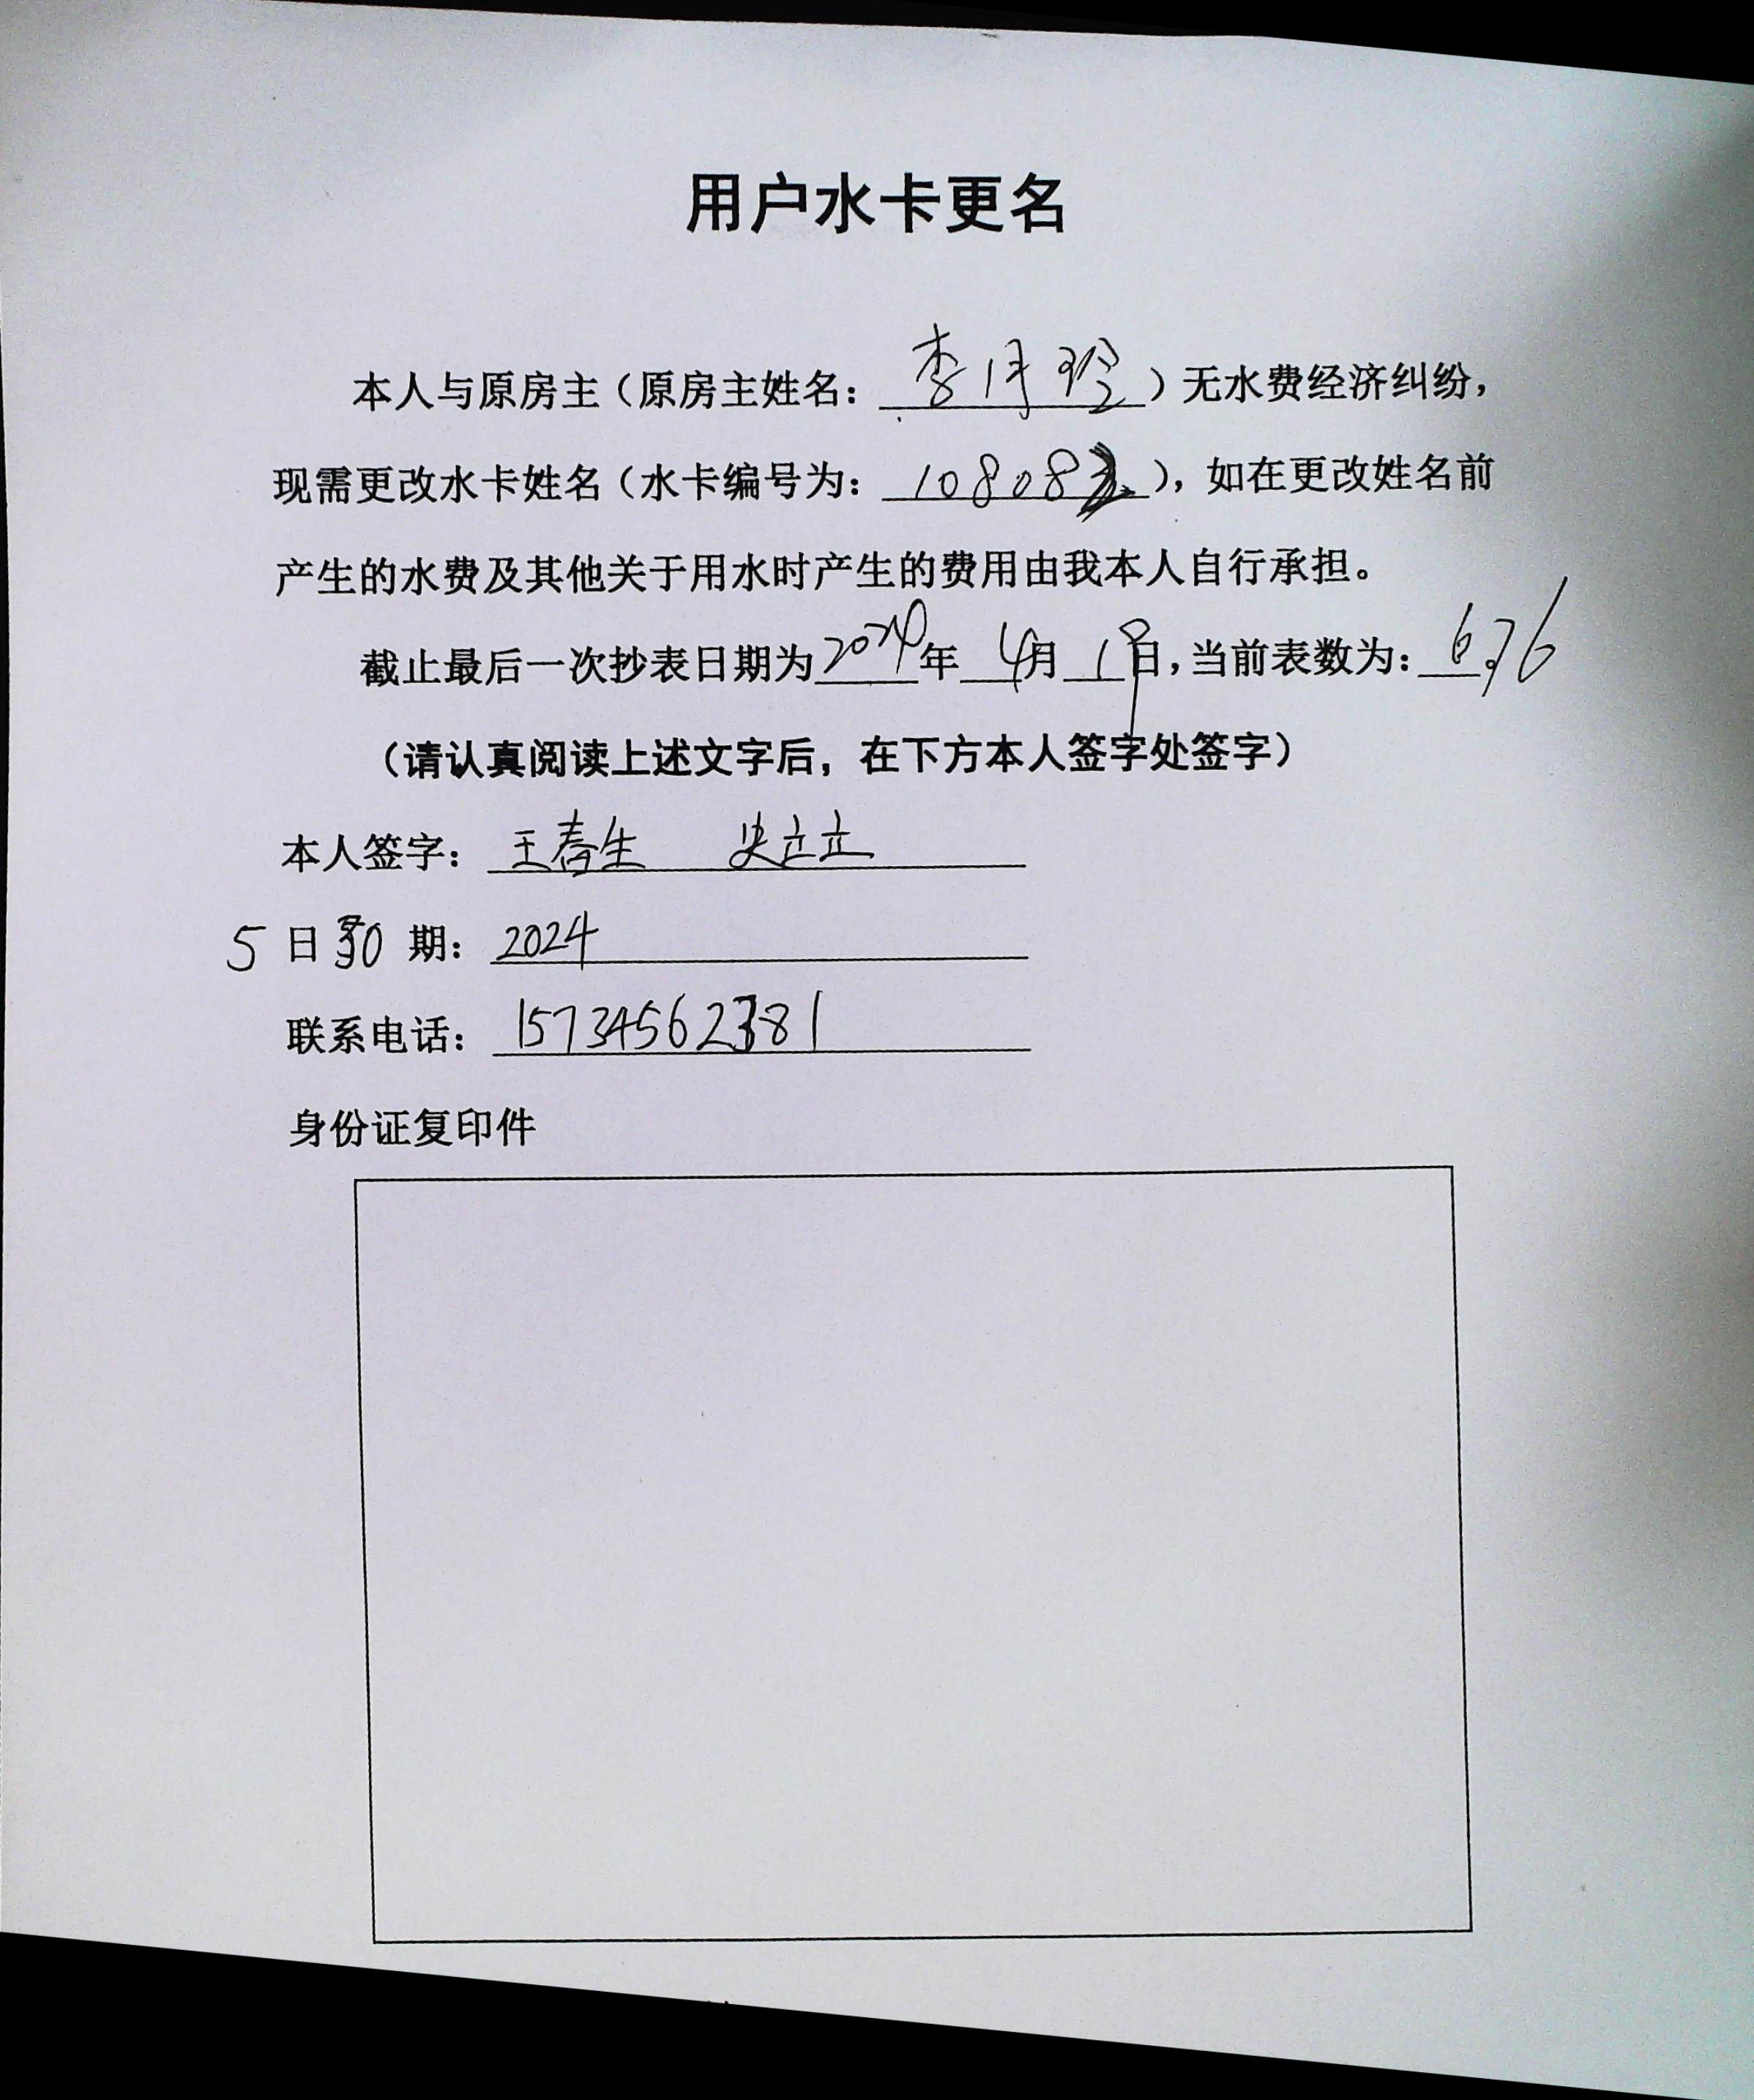 用户水卡更名
本人与原房主（原房主姓名：李月玲）无水费经济纠纷，
现需更改水卡姓名（水卡编号为：10808），如在更改姓名前
产生的水费及其他关于用水时产生的费用由我本人自行承担。
截止最后一次抄表日期为2024年4月19日，当前表数为：676
（请认真阅读上述文字后，在下方本人签字处签字）
本人签字：王春生 史立立
5日30期：2024
联系电话：15734562381
身份证复印件